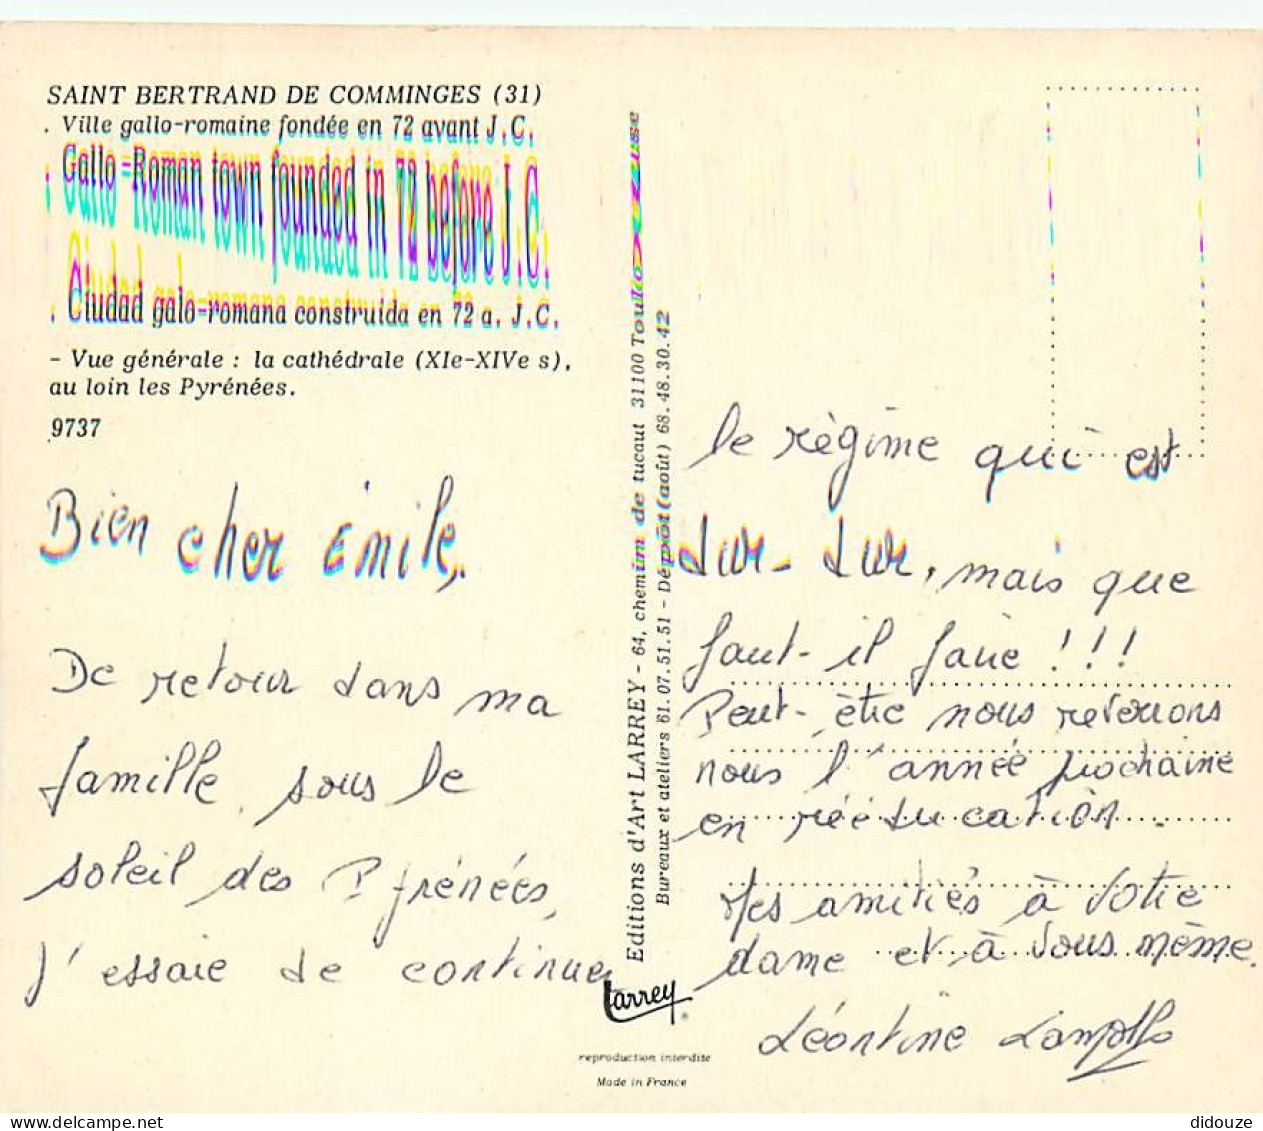 SAINT BERTRAND DE COMMINGES (31)
. Ville gallo-romaine fondée en 72 avant J.C.
. Gallo-Roman town founded in 72 before J.C.
. Ciudad galo-romana construida en 72 a. J.C.
- Vue générale : la cathédrale (XIe-XIVe s),
au loin les Pyrénées.
9737
Bien cher Émile,
De retour dans ma
famille, sous le
soleil des Pyrénées,
j'essaie de continuer
Editions d'Art LARREY - 64, chemin de tucaut 31100 Toulouse
Bureaux et ateliers 61.07.51.51 - Dépôt (août) 68.48.30.42
Larrey
reproduction interdite
Made in France
le régime qui est
dur-dur, mais que
faut-il faire !!!
Peut-être nous reverrons
nous l'année prochaine
en rééducation.
Mes amitiés à votre
dame et à vous même.
Léontine
didouze